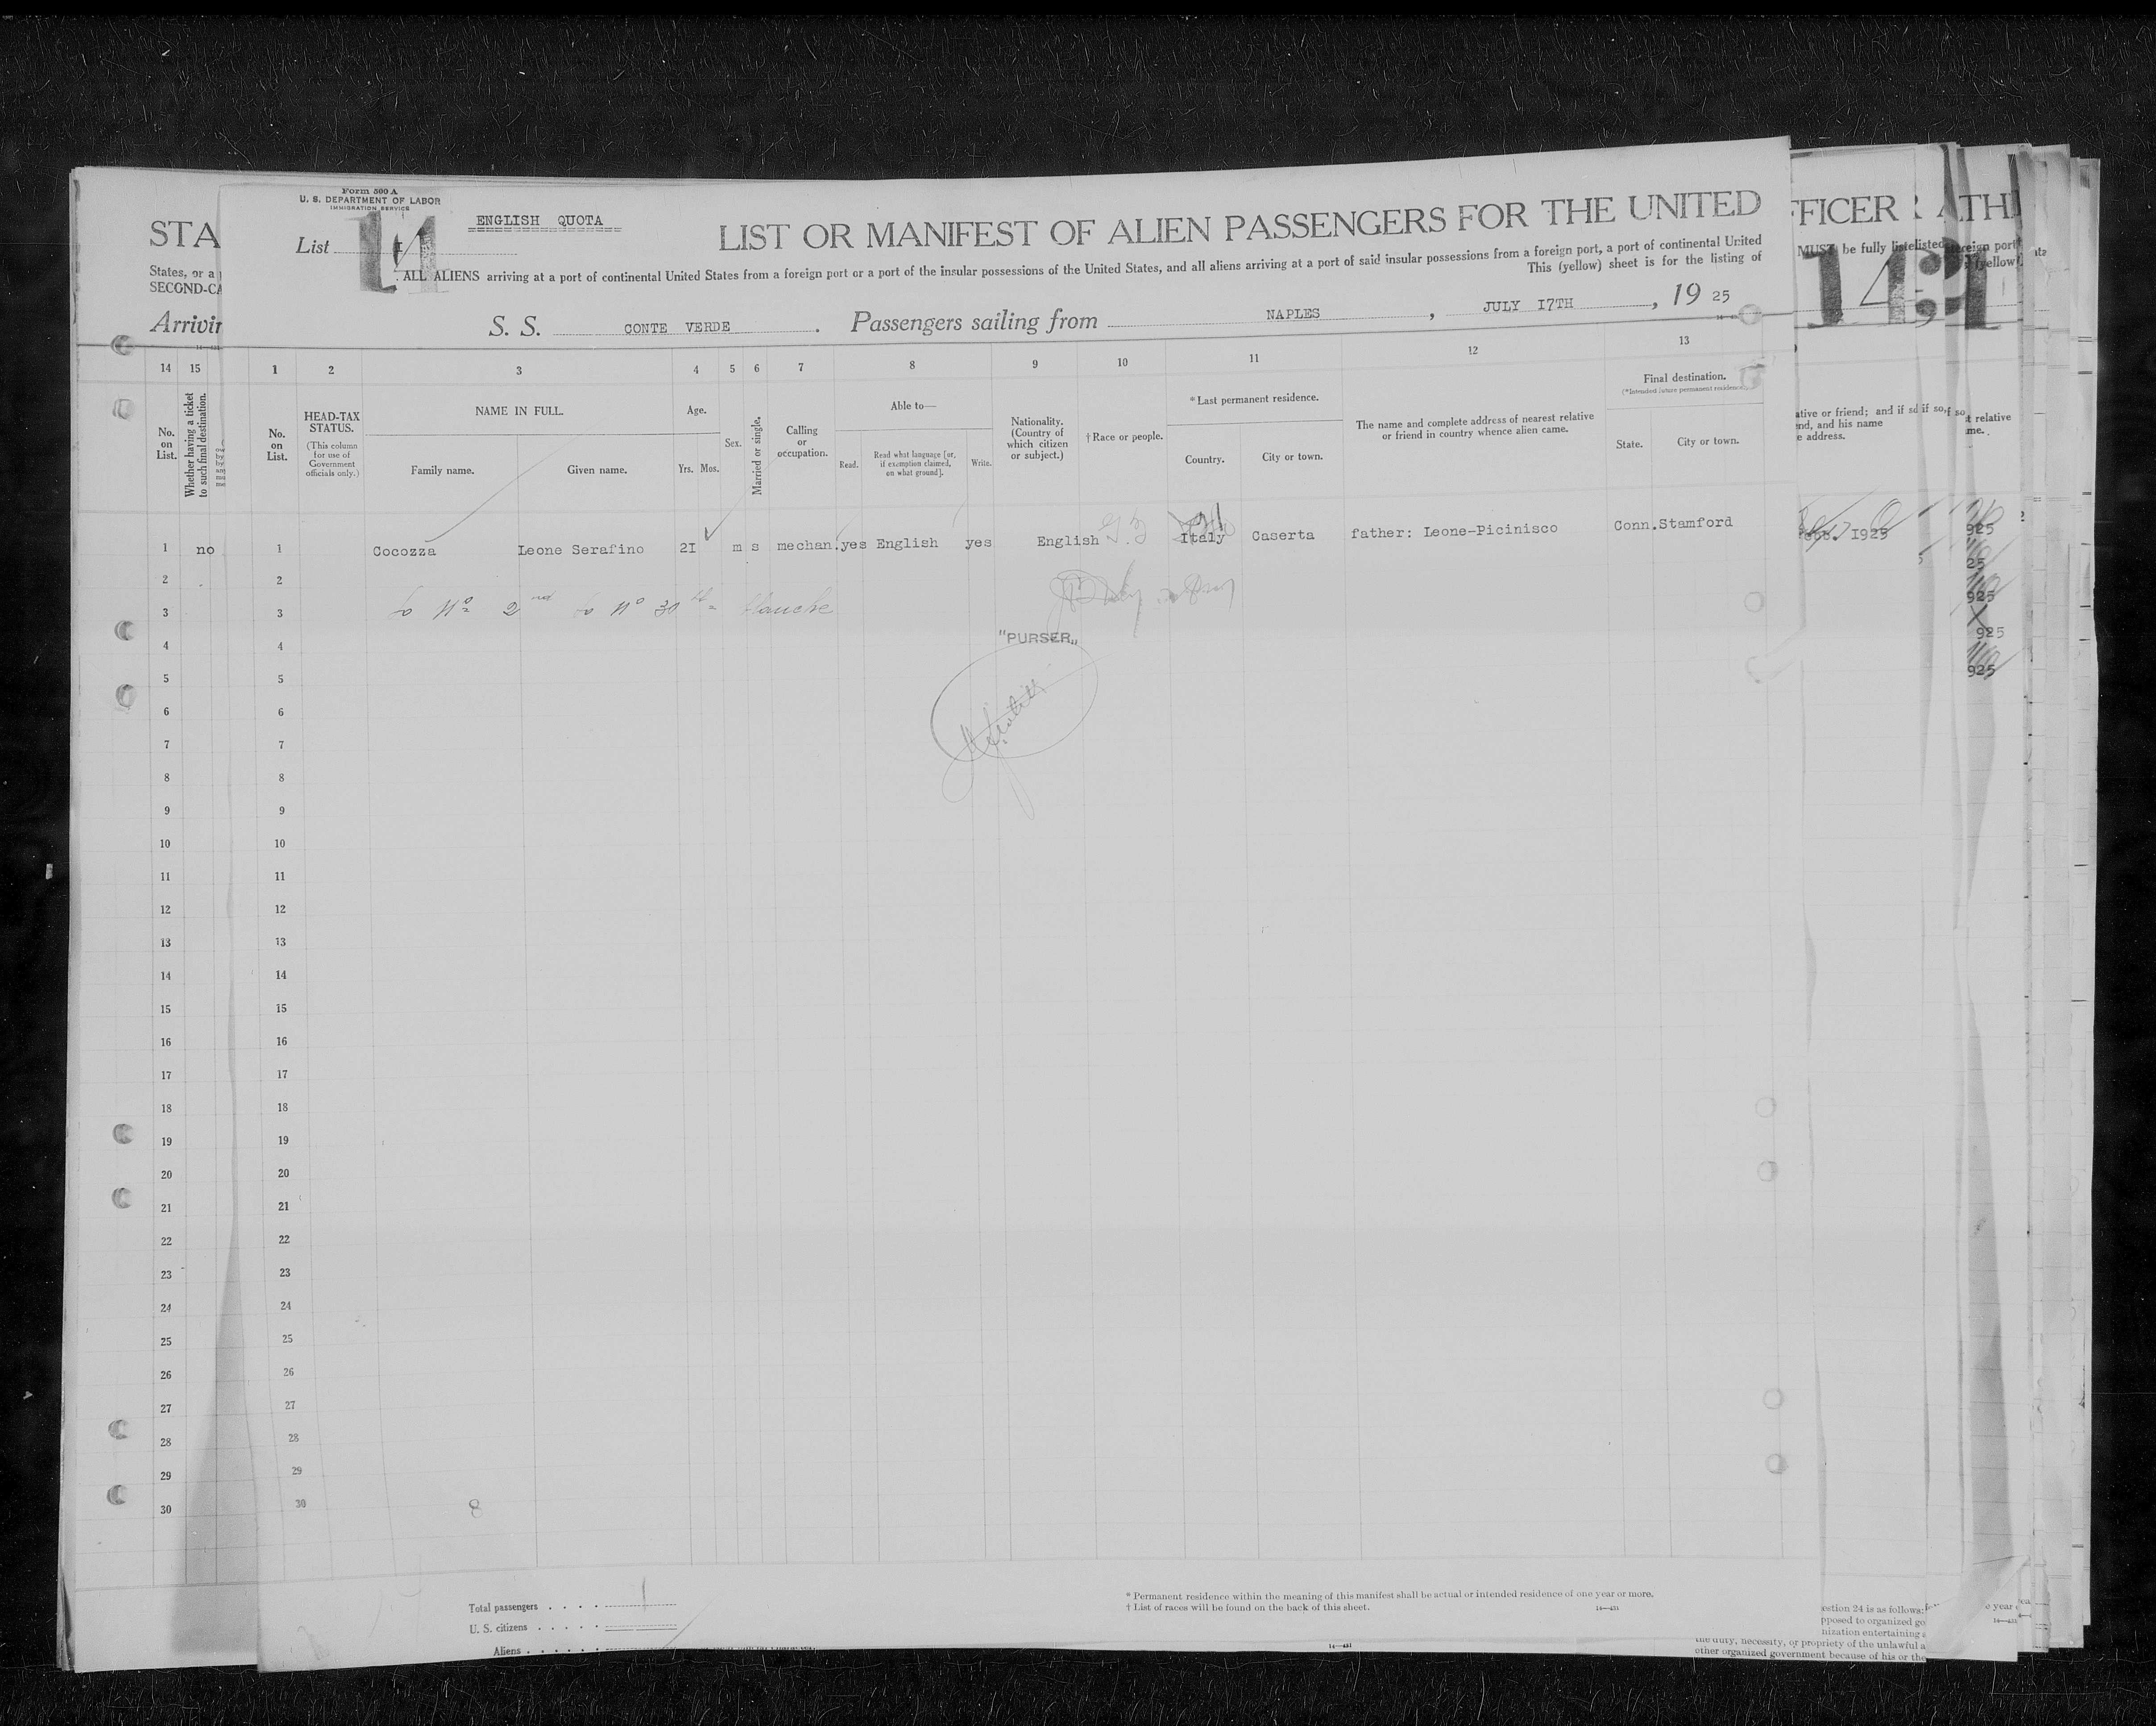 Form 500 A
U. S. DEPARTMENT OF LABOR
IMMIGRATION SERVICE
List 14
ENGLISH QUOTA
LIST OR MANIFEST OF ALIEN PASSENGERS FOR THE UNITED
ALL ALIENS arriving at a port of continental United States from a foreign port or a port of the insular possessions of the United States, and all aliens arriving at a port of said insular possessions from a foreign port, a port of continental United
This (yellow) sheet is for the listing of
S. S. CONTE VERDE. Passengers sailing from NAPLES, JULY I7TH, 19 25
STA
States, or a
SECOND-CA
Arrivin
FFICER
ATH
MUST be fully listed
eign port
(yellow)
143
14 15 1 2 3 4 5 6 7 8 9 10 11 12 13
No. on List.
Whether having a ticket to such final destination.
No. on List.
HEAD-TAX STATUS.
(This column for use of Government officials only.)
NAME IN FULL.
Family name.
Given name.
Age.
Yrs. Mos.
Sex.
Married or single.
Calling or occupation.
Able to—
Read.
Read what language [or, if exemption claimed, on what ground].
Write.
Nationality. (Country of which citizen or subject.)
† Race or people.
* Last permanent residence.
Country.
City or town.
The name and complete address of nearest relative or friend in country whence alien came.
Final destination.
(*Intended future permanent residence.)
State.
City or town.
ative or friend; and if so
end, and his name
e address.
t relative
me.
1 no 1 Cocozza Leone Serafino 2I m s mechan. yes English yes English Italy Caserta father: Leone-Picinisco Conn. Stamford
I925
925
25
925
925
925
2 2
3 3 Nº 2nd Nº 30 blanche
4 4
"PURSER"
5 5
6 6
7 7
8 8
9 9
10 10
11 11
12 12
13 13
14 14
15 15
16 16
17 17
18 18
19 19
20 20
21 21
22 22
23 23
24 24
25 25
26 26
27 27
28 28
29 29
30 30
8
Total passengers . . . . 1
U. S. citizens . . . . .
Aliens . . . . . .
* Permanent residence within the meaning of this manifest shall be actual or intended residence of one year or more.
† List of races will be found on the back of this sheet.
14—431
estion 24 is as follows:
pposed to organized go
nization entertaining a
the duty, necessity, or propriety of the unlawful a
other organized government because of his or the